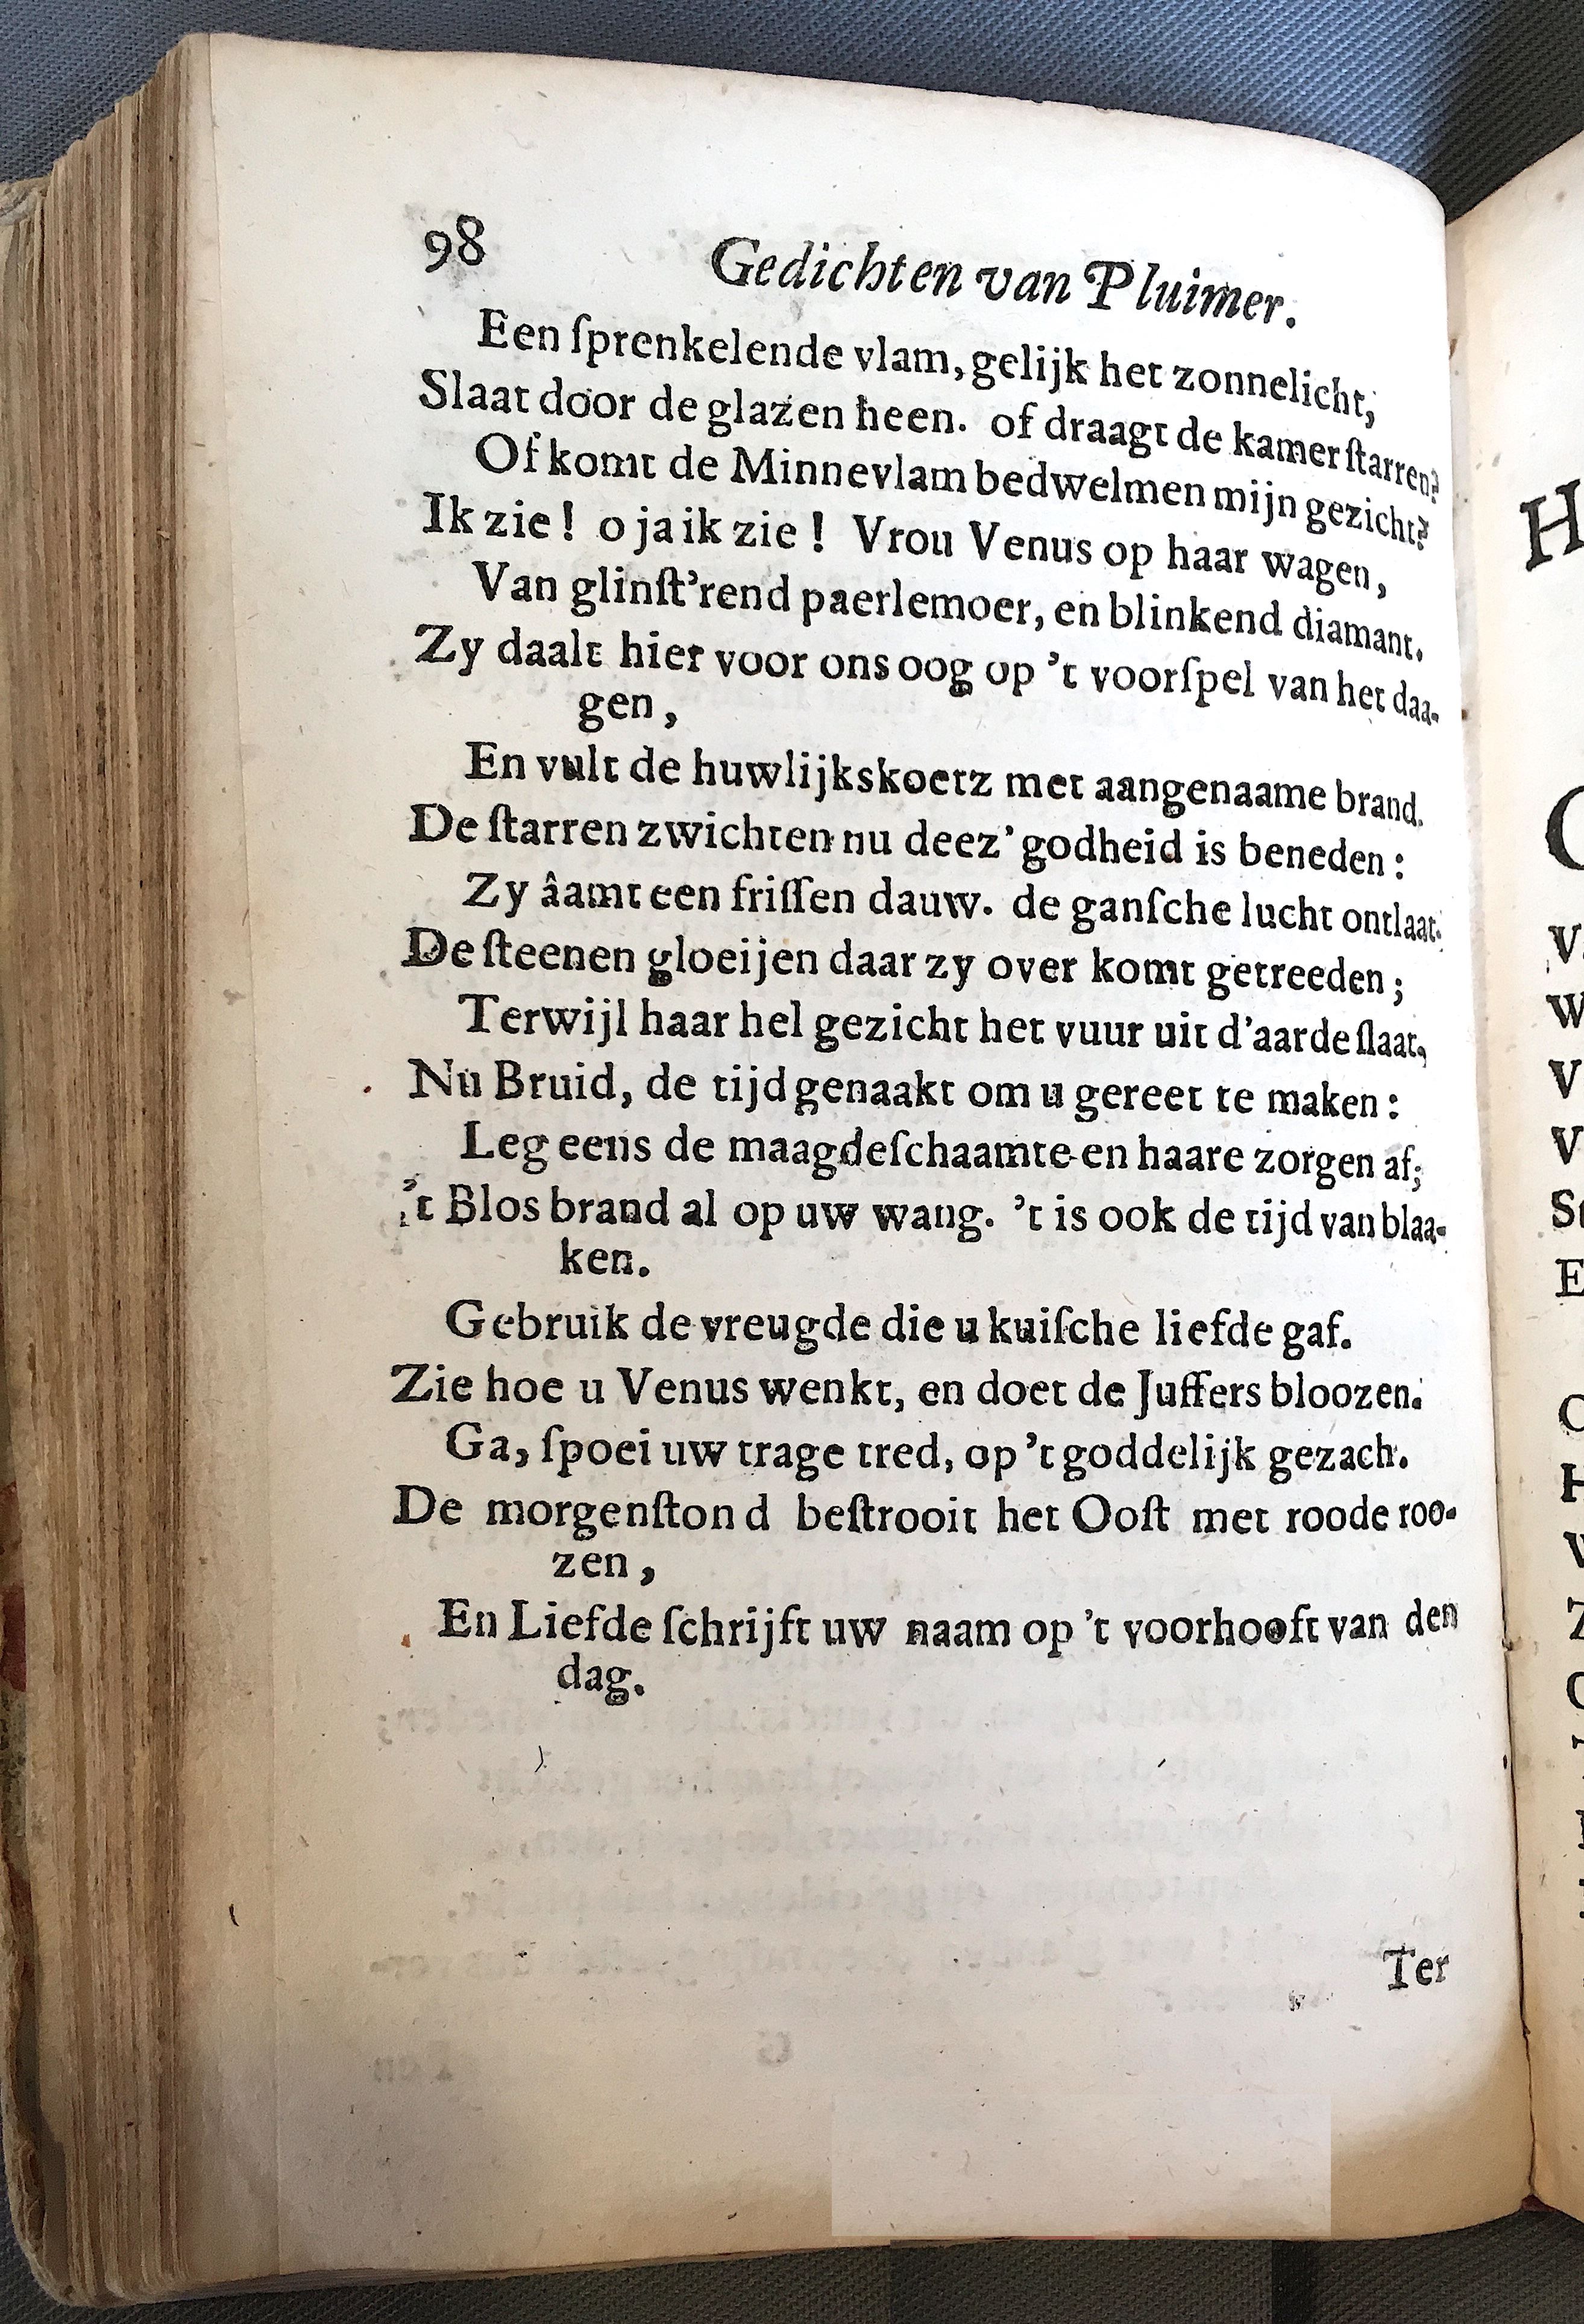 98
Gedichten van Pluimer.
Een ſprenkelende vlam, gelijk het zonnelicht,
Slaat door de glazen heen. of draagt de kamer ſtarren?
Of komt de Minnevlam bedwelmen mijn gezicht?
Ik zie! o ja ik zie! Vrou Venus op haar wagen,
Van glinſt'rend paerlemoer, en blinkend diamant.
Zy daalt hier voor ons oog op 't voorſpel van het daa-
gen,
En vult de huwlijkskoetz met aangenaame brand.
De ſtarren zwichten nu deez' godheid is beneden:
Zy âamt een friſſen dauw. de ganſche lucht ontlaat.
De ſteenen gloeijen daar zy over komt getreeden;
Terwijl haar hel gezicht het vuur uit d'aarde ſlaat,
Nu Bruid, de tijd genaakt om u gereet te maken:
Leg eens de maagdeſchaamte en haare zorgen af;
't Blos brand al op uw wang. 't is ook de tijd van blaa-
ken.
Gebruik de vreugde die u kuiſche liefde gaf.
Zie hoe u Venus wenkt, en doet de Juffers bloozen.
Ga, ſpoei uw trage tred, op 't goddelijk gezach.
De morgenſtond beſtrooit het Ooſt met roode roo-
zen,
En Liefde ſchrijft uw naam op 't voorhooft van den
dag.
Ter